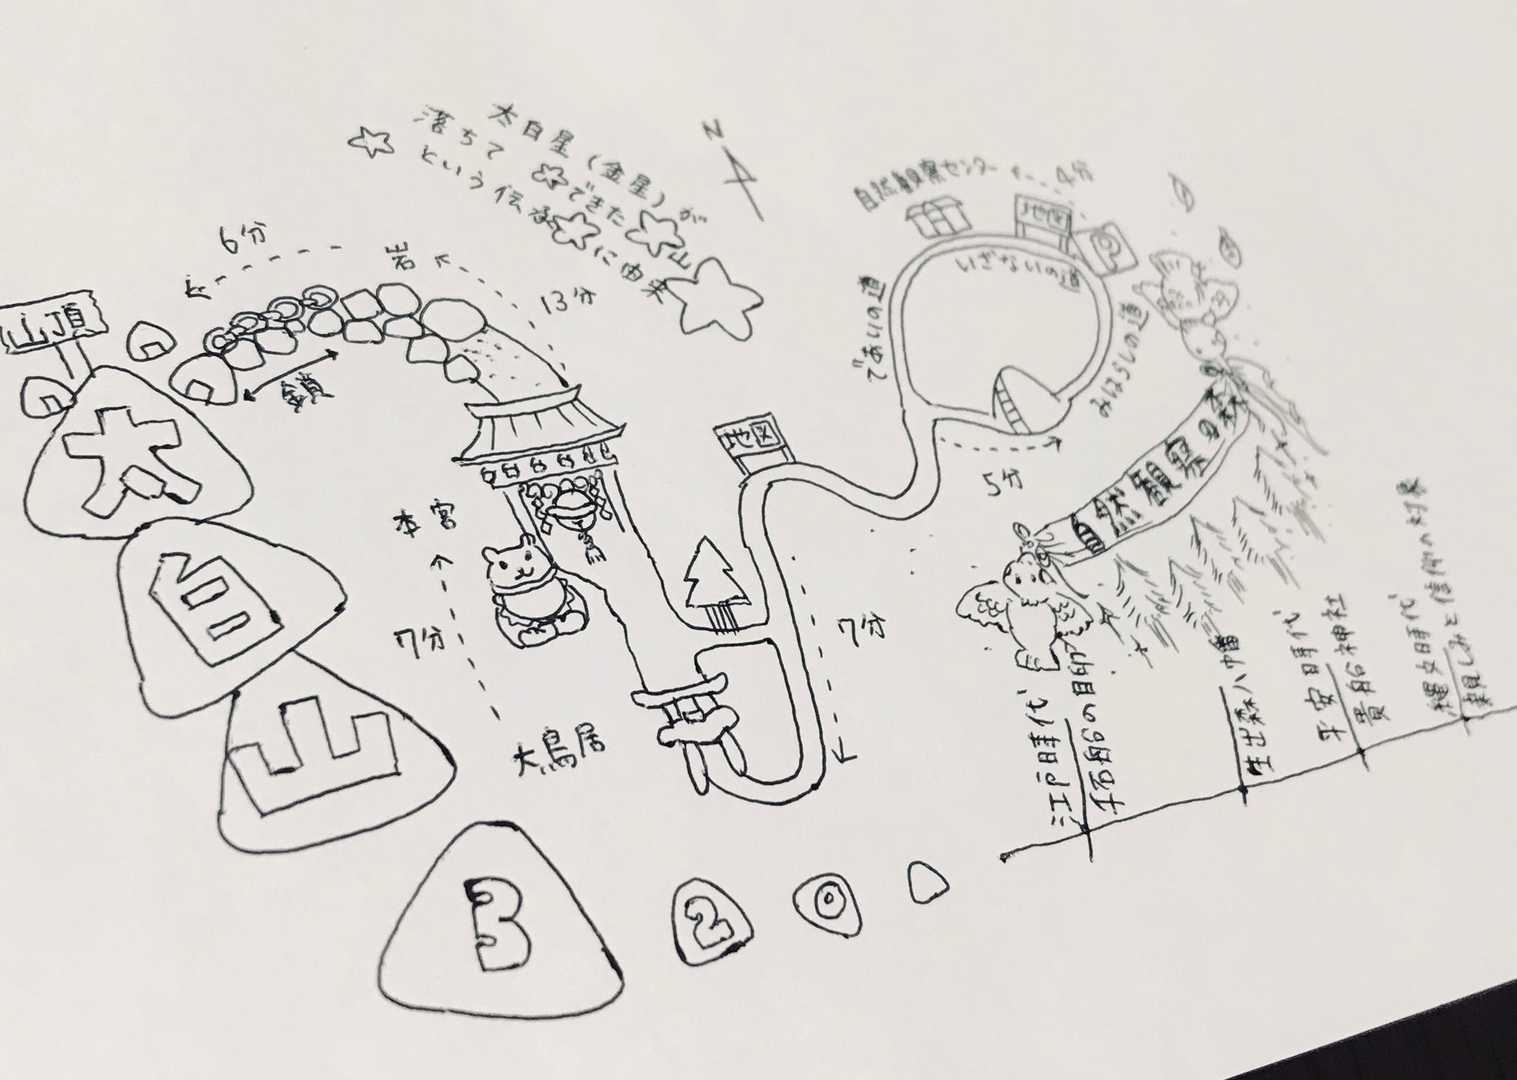 太白星（金星）が
落ちてできた山
という伝承に由来
N
6分
岩
13分
山頂
鎖
太
白
山
本宮
7分
大鳥居
地図
7分
自然観察センター
4分
地図
P
いざないの道
であいの道
みはらしの道
5分
自然観察の森
江戸時代
千石船の目印
生出森八幡
平安時代
貴船神社
縄文時代
親しみと信仰の対象
3
2
0